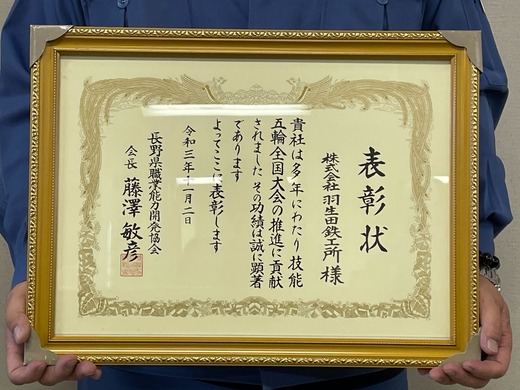 表彰状
株式会社羽生田鉄工所 様
貴社は多年にわたり技能
五輪全国大会の推進に貢献
されました その功績は誠に顕著
であります
よってここに表彰します
令和三年十一月二日
長野県職業能力開発協会
会長 藤澤敏彦